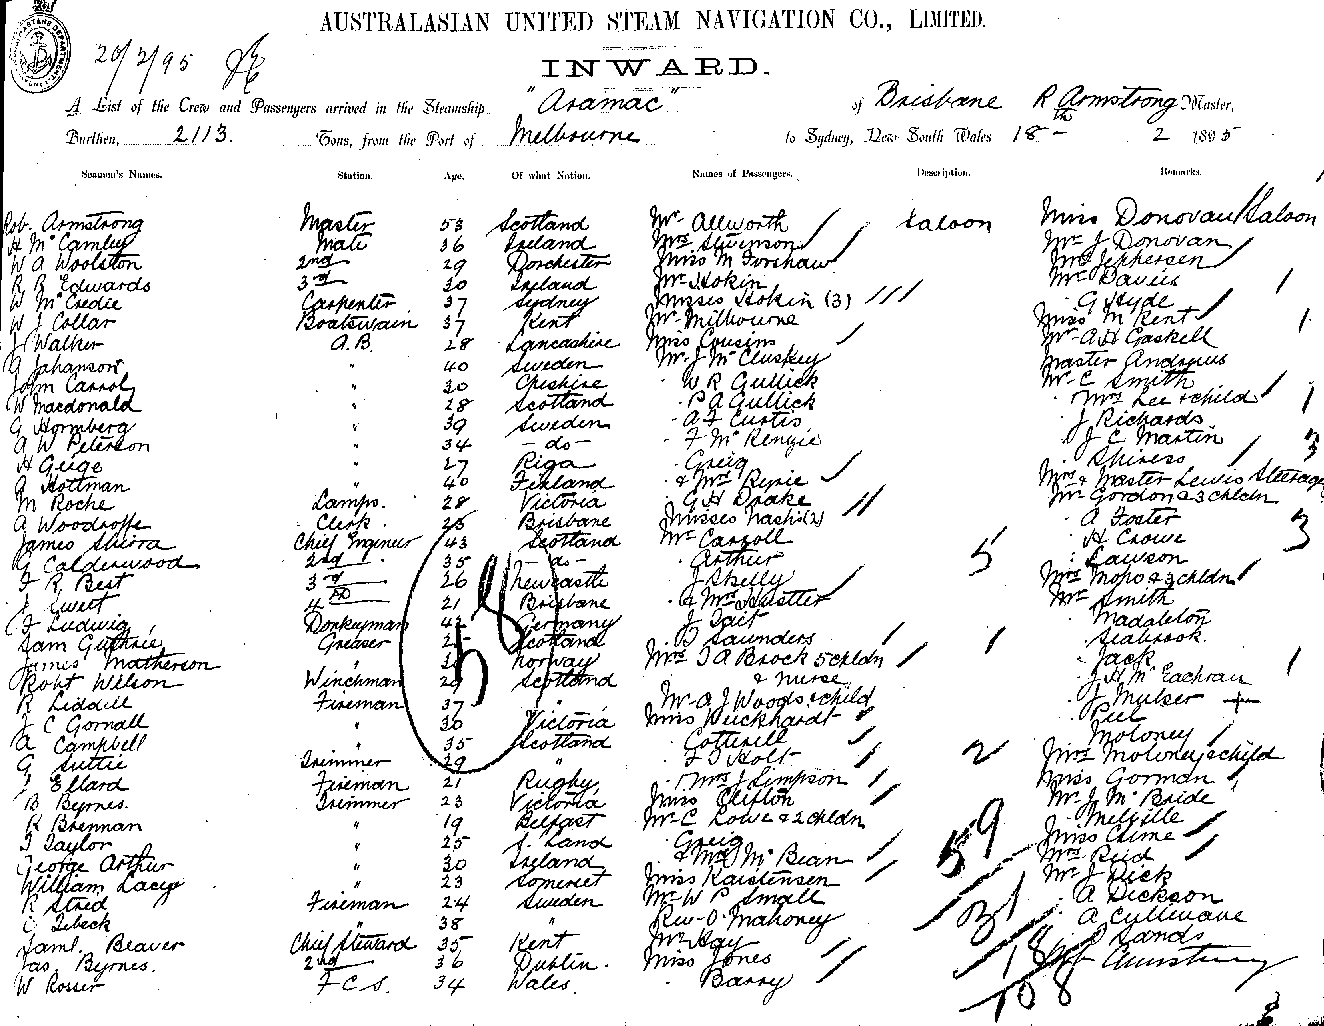 AUSTRALASIAN UNITED STEAM NAVIGATION CO., LIMITED.
20/2/95
INWARD.
A List of the Crew and Passengers arrived in the Steamship "Aramac" of Brisbane R Armstrong Master,
Burthen, 2113. Tons, from the Port of Melbourne to Sydney, New South Wales 18th 2 1895
Seamen's Names. Station. Age. Of what Nation. Names of Passengers. Description. Remarks.
Rob. Armstrong Master 53 Scotland Mr Allworth Saloon Miss Donovan Saloon
H McCamley Mate 36 Ireland Mrs Stevenson Mr J Donovan
W A Woolston 2nd 29 Dorchester Miss M Forshaw Mr Jephersen
R R Edwards 3rd 30 Ireland Mr Hokin Mr Davies
W McCredie Carpenter 37 Sydney Misses Hokin (3) G Hyde
W J Collar Boatswain 37 Kent Mr Milbourne Miss M Kent
J Walker A.B. 28 Lancashire Miss Cousins Mr A H Gaskell
G Johanson " 40 Sweden Mr J McCluskey Master Andrews
John Carrol " 30 Cheshire W R Gullick Mr C Smith
W Macdonald " 28 Scotland P A Gullick Mrs Lee & child
G Hormberg " 39 Sweden A F Curtis J Richards
A W Peterson " 34 - do - F McKenzie J C Martin
H Geige " 27 Riga Greig Shiress
A Hottman " 40 Finland & Mrs Ryrie Mrs & Master Lewis Steerage
M Roche Lamps. 28 Victoria G H Drake Mr Gordon & 3 chldn
A Woodroffe Clerk. 25 Brisbane Misses Nash (2) A Foster
James Shirra Chief Engineer 43 Scotland Mr Carroll H Crowe
G Calderwood 2nd 35 - do - Arthur 5 Lawson 3
F R Best 3rd 26 Newcastle J Shelly Mrs Mopo & 3 chldn
J Sweet 4th 21 Brisbane & Mrs Hustler Mr Smith
F Ludwig Donkeyman 42 Germany J Tait Madaleton
Sam Guthrie Greaser Scotland D Saunders Seabrook
James Matherson " Norway Mrs T A Brock 5 chldn Jack
Robt Wilson Winchman 29 Scotland & Nurse J H McEachran
R Liddell Fireman 37 " Mr A J Woods & child J Mulser
J C Gornall " 30 Victoria Miss Buckhardt Peel
A Campbell " 35 Scotland Cotterell Moloney
G Suttie Trimmer 29 " F J Holt 2 Mrs Moloney & child
Ellard Fireman 21 Rugby Mrs J Simpson Miss Gorman
B Byrnes. Trimmer 23 Victoria Miss Clifton Mr J McBride
R Brennan " 19 Belfast Mr C Lowe & 2 chldn Melville
T Taylor " 25 Greig 59 Miss Clime
George Arthur " 30 Ireland & Mrs McBean Mrs Reid
William Lacey " 23 Somerset Miss Karstensen Mr J Dick
R Stred Fireman 24 Sweden Mr W P Small A Dickson
C Zebeck " 38 " Rev O'Mahoney 31 A Cullwave
Saml. Beaver Chief Steward 35 Kent Mr Hay P Sands
Jas. Byrnes. 2nd 36 Dublin. Miss Jones 18 Armstrong
W Rosser F.C.S. 34 Wales. Barry 108
58